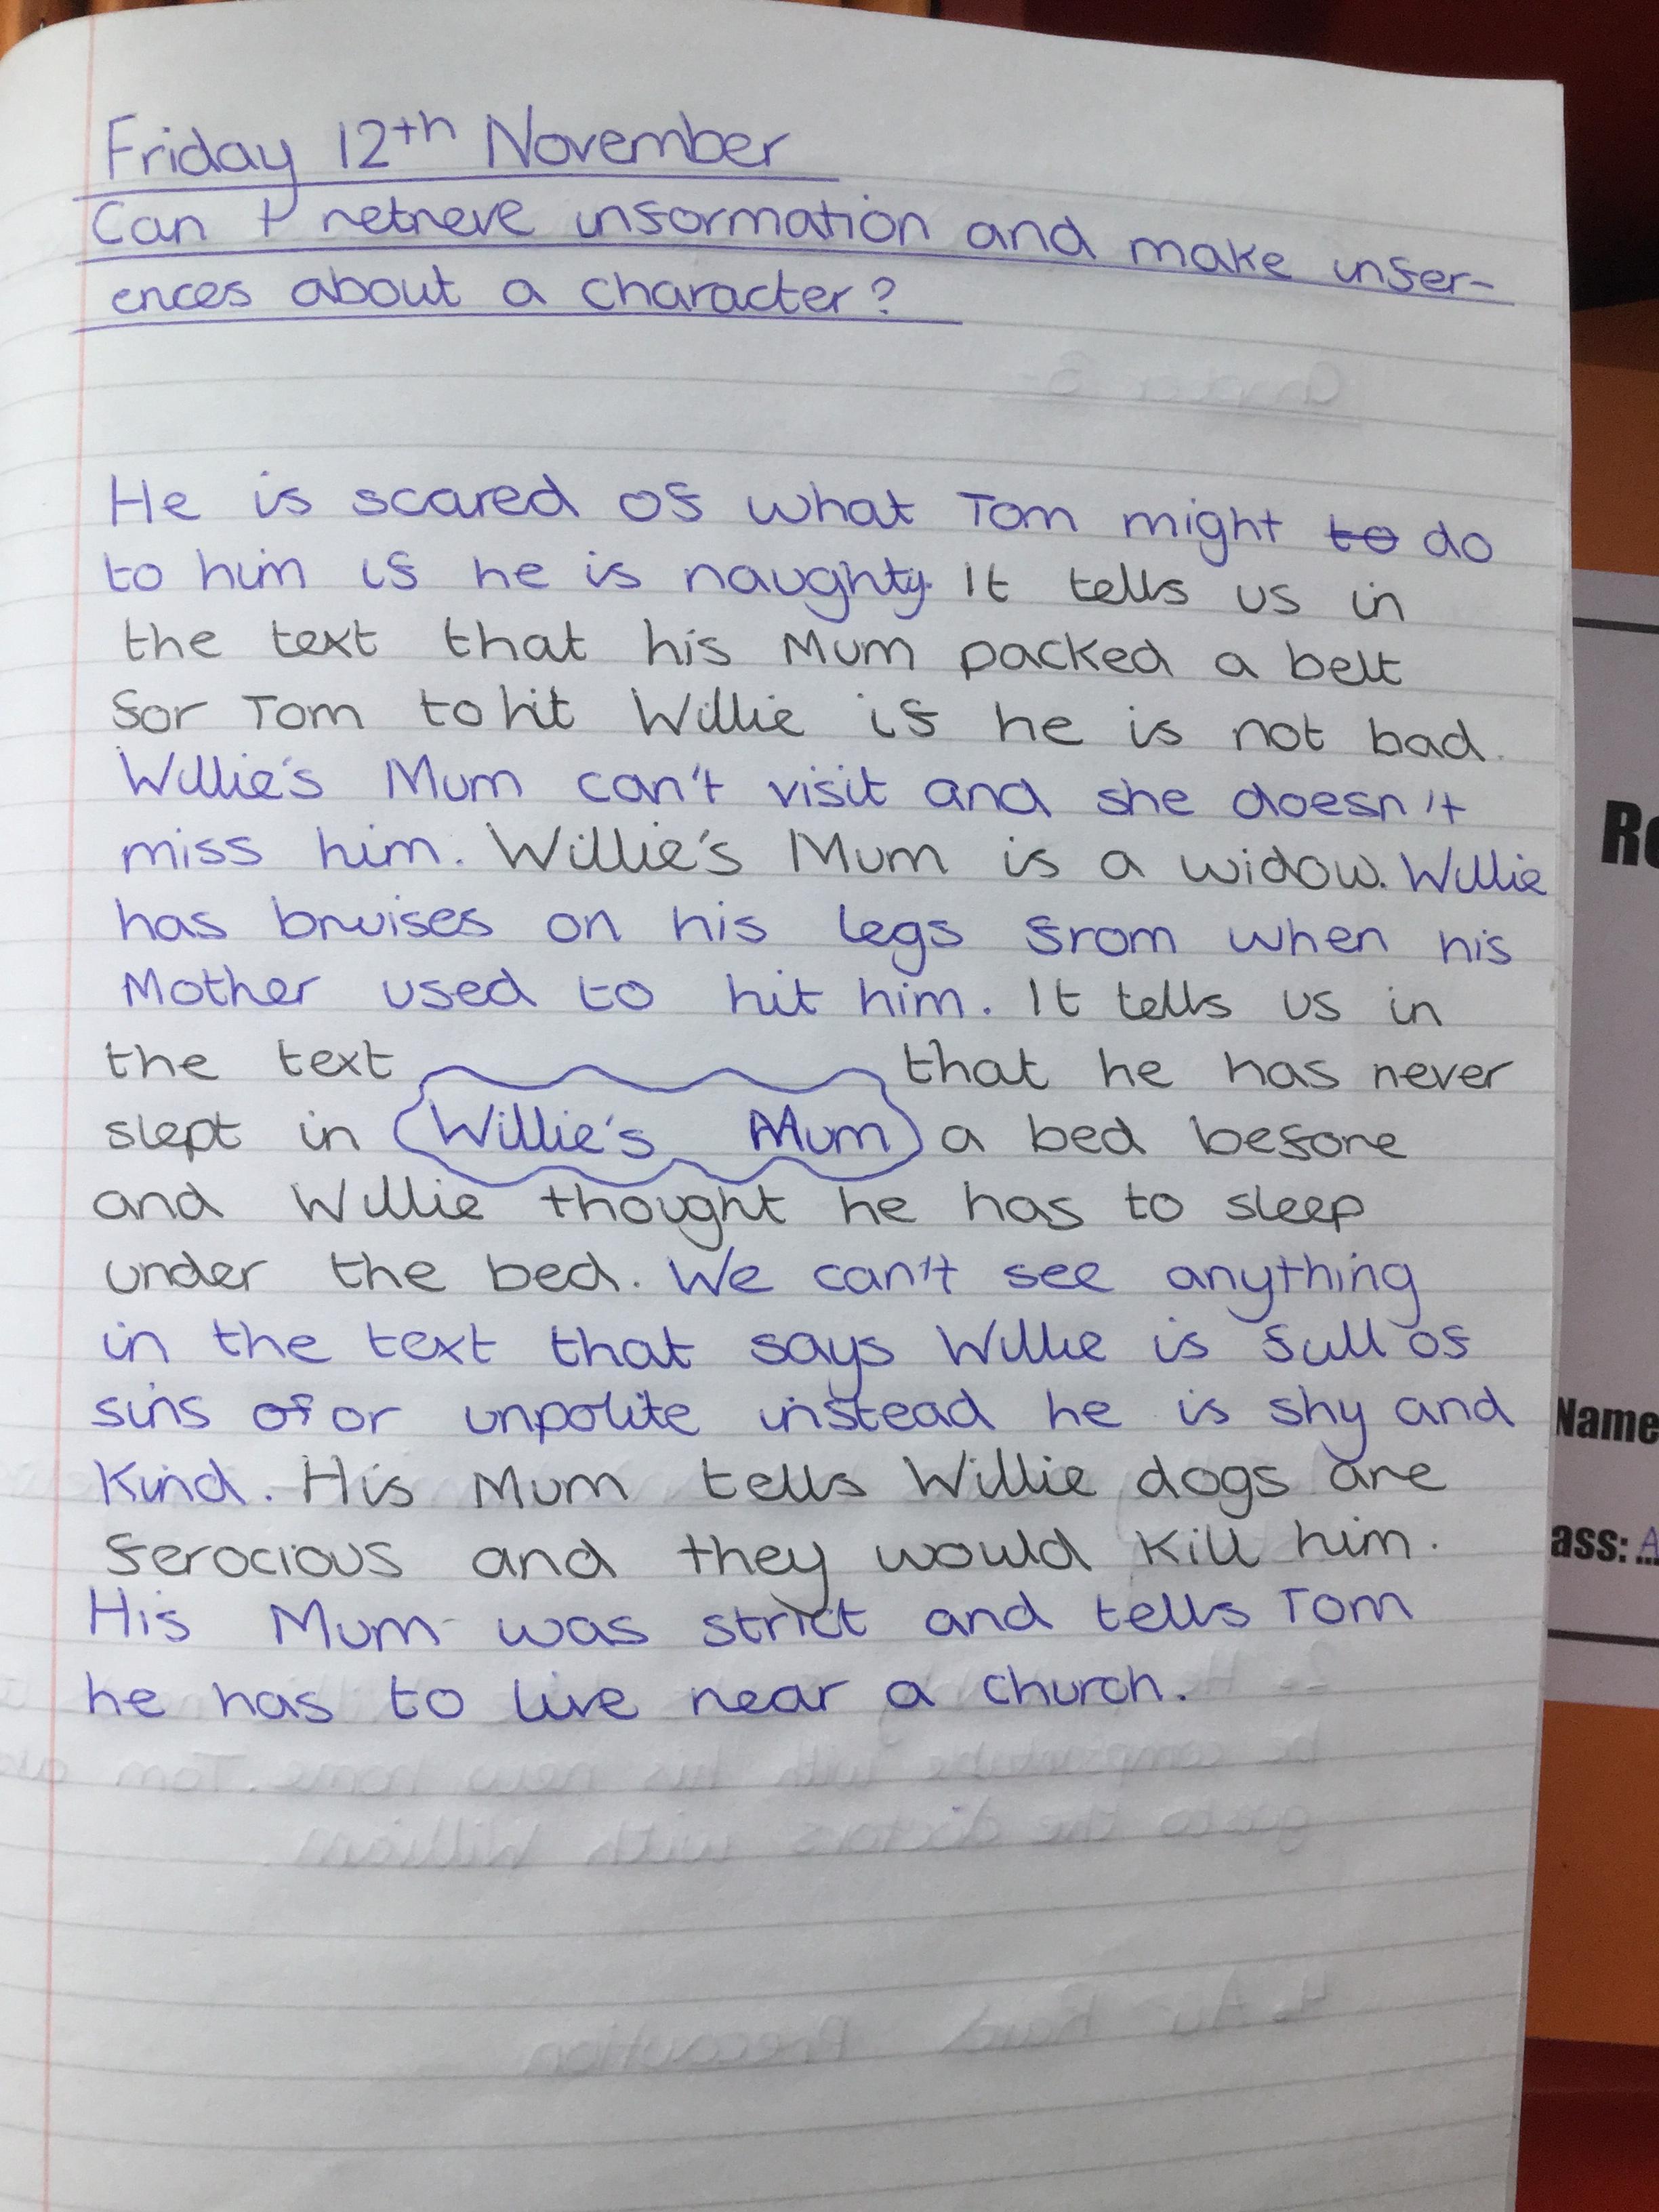 Friday 12th November
Can I retrieve information and make infer-
ences about a character?
He is scared of what Tom might to do
to him if he is naughty. It tells us in
the text that his Mum packed a belt
for Tom to hit Willie if he is not bad.
Willie's Mum can't visit and she doesn't
miss him. Willie's Mum is a widow. Willie
has bruises on his legs from when his
Mother used to hit him. It tells us in
the text that he has never
slept in Willie's Mum a bed before
and Willie thought he has to sleep
under the bed. We can't see anything
in the text that says Willie is full of
sins of or unpolite instead he is shy and
kind. His Mum tells Willie dogs are
ferocious and they would kill him.
His Mum was strict and tells Tom
he has to live near a church.
Name
ass: A